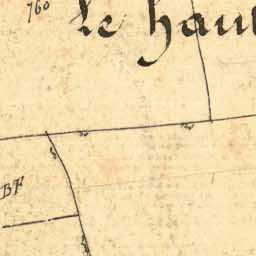 760
le haut
BF